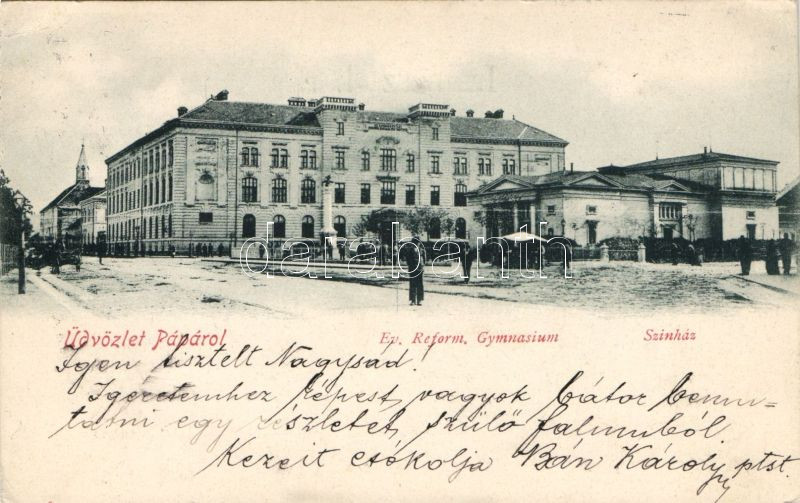 darabanth
Üdvözlet Pápárol
Ev. Reform. Gymnasium
Szinház
Igen tisztelt Nagysád!
Igeretemhez képest, vagyok bátor bemu-
tatni egy részletet, szülő falumból.
Kezeit csókolja Bán Károly ptst.